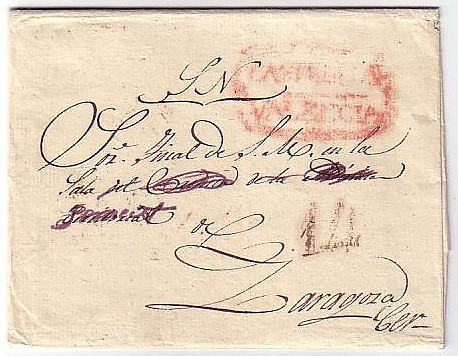 S N
CASTELLON
VALENCIA
Sor. Fiscal de S. M. en la
Sala del de la
de
14
Zaragoza